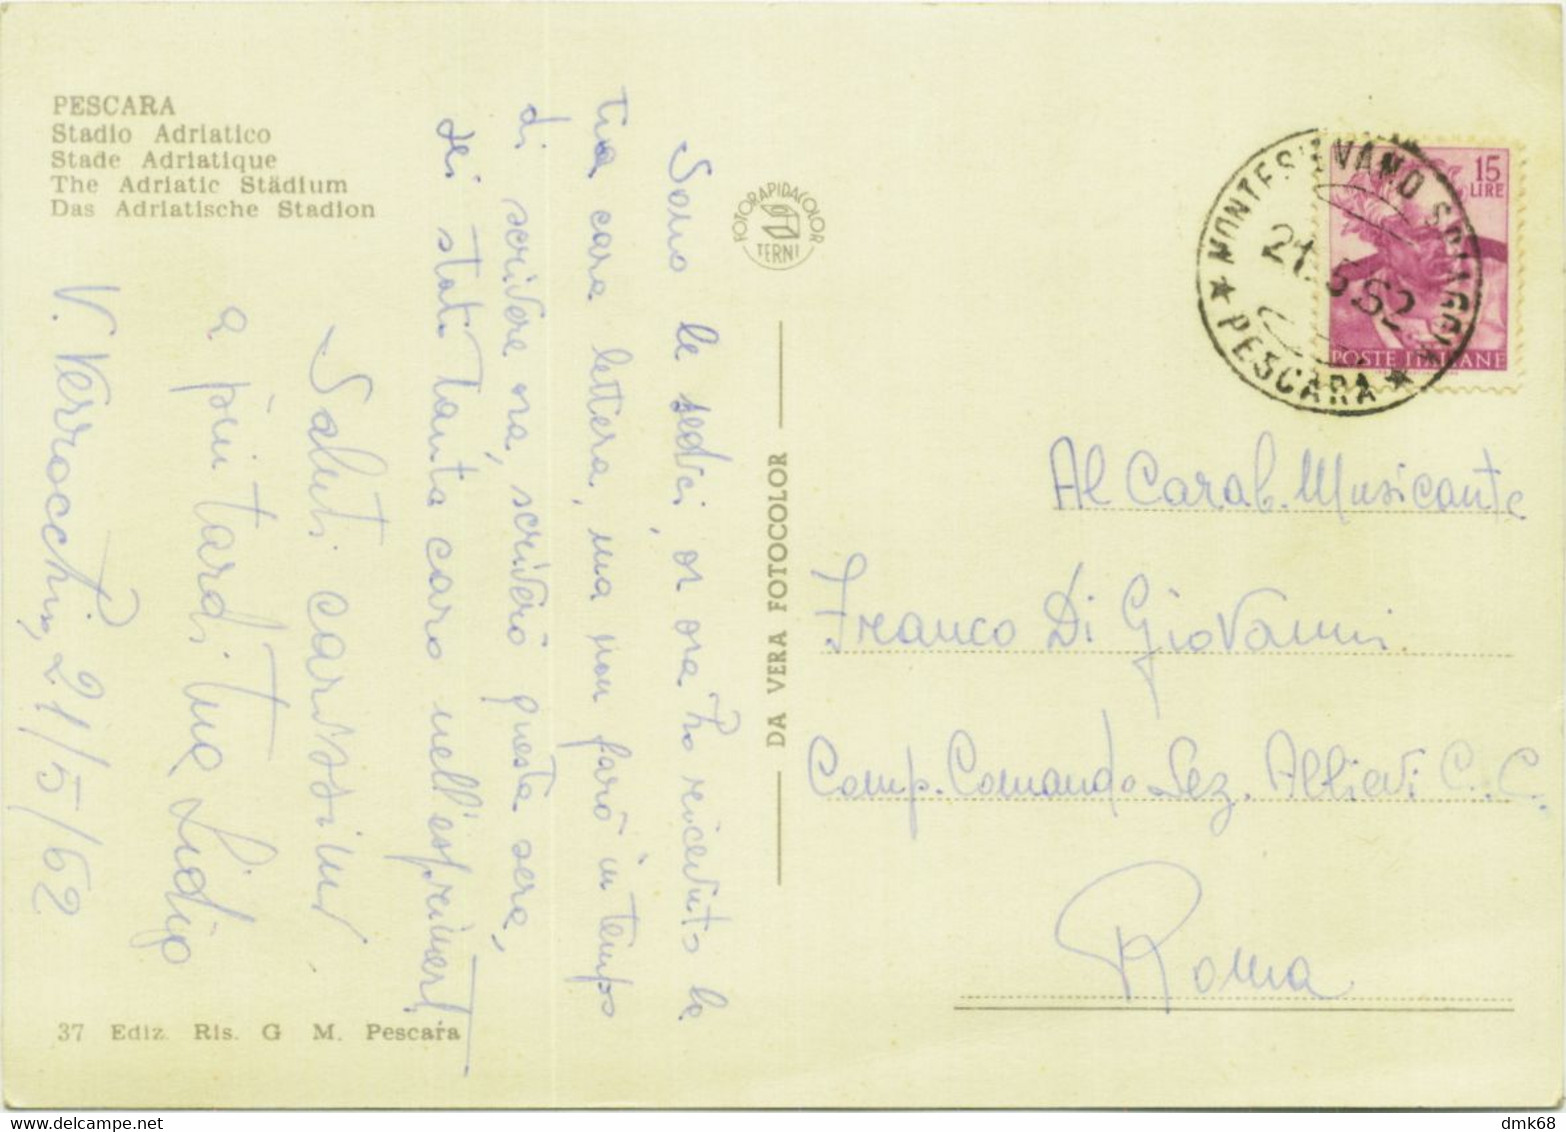 PESCARA
Stadio Adriatico
Stade Adriatique
The Adriatic Städium
Das Adriatische Stadion
Sono le sedici, or ora ho ricevuto la
tua cara lettera, ma non farò in tempo
di scrivere ora, scriverò questa sera,
sei stato tanto caro nell'esprimerti
Saluti carissimi
a più tardi tua
V. Verrocchio, 21/5/62
37 Ediz. Ris. G. M. Pescara
FOTORAPIDACOLOR
TERNI
DA VERA FOTOCOLOR
MONTESILVANO SPIAGGIA
21.5.62
* PESCARA *
15
LIRE
POSTE ITALIANE
Al Carab. Musicante
Franco Di Giovanni
Comp. Comando Sez. Allievi C.C.
Roma
dmk68